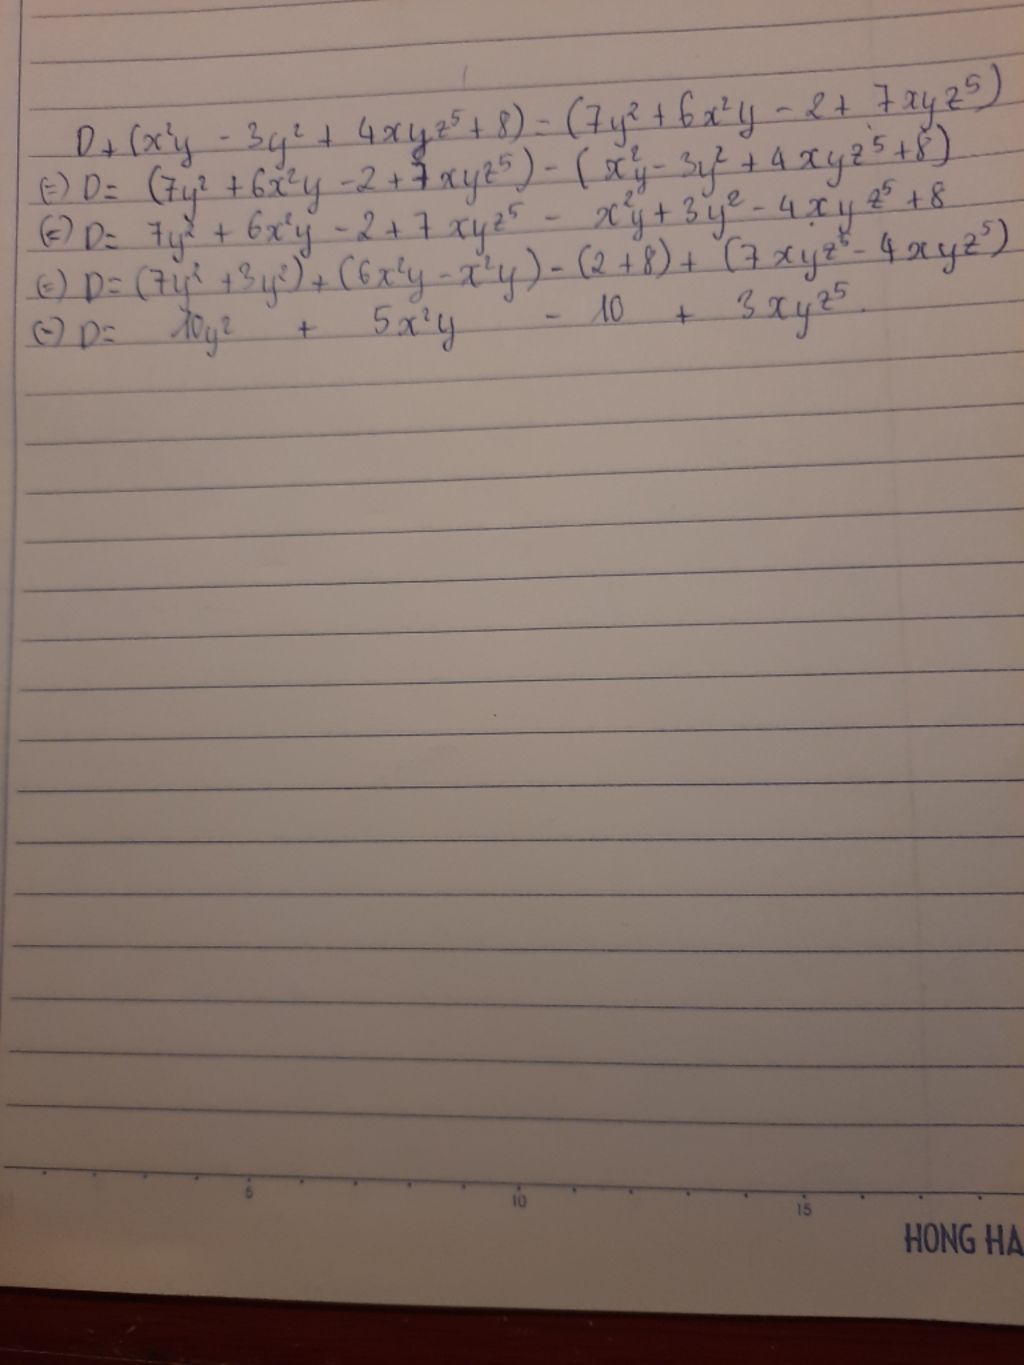 D + (x²y - 3y² + 4xyz⁵ + 8) = (7y² + 6x²y - 2 + 7xyz⁵)
(=) D = (7y² + 6x²y - 2 + 7xyz⁵) - (x²y - 3y² + 4xyz⁵ + 8)
(=) D = 7y² + 6x²y - 2 + 7xyz⁵ - x²y + 3y² - 4xyz⁵ + 8
(=) D = (7y² + 3y²) + (6x²y - x²y) - (2 + 8) + (7xyz⁵ - 4xyz⁵)
(=) D = 10y² + 5x²y - 10 + 3xyz⁵.
5 10 15
HONG HA